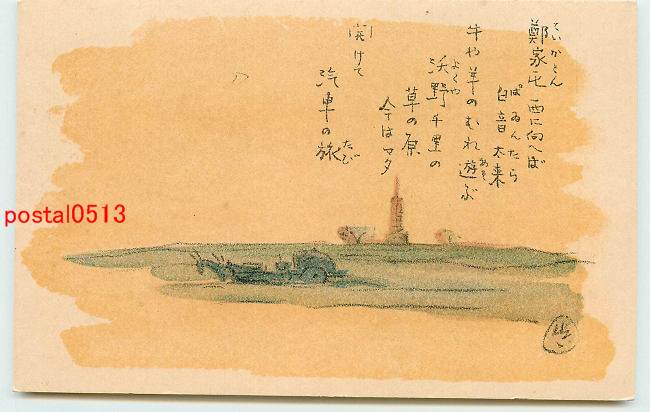 鄭家屯西に向へば
ていかとん
白音太来
ぱゐんたら
牛や羊のむれ遊ぶ
あそ
沃野千里の
よくや
草の原
今はマタ
開けて
汽車の旅
たび
postal0513